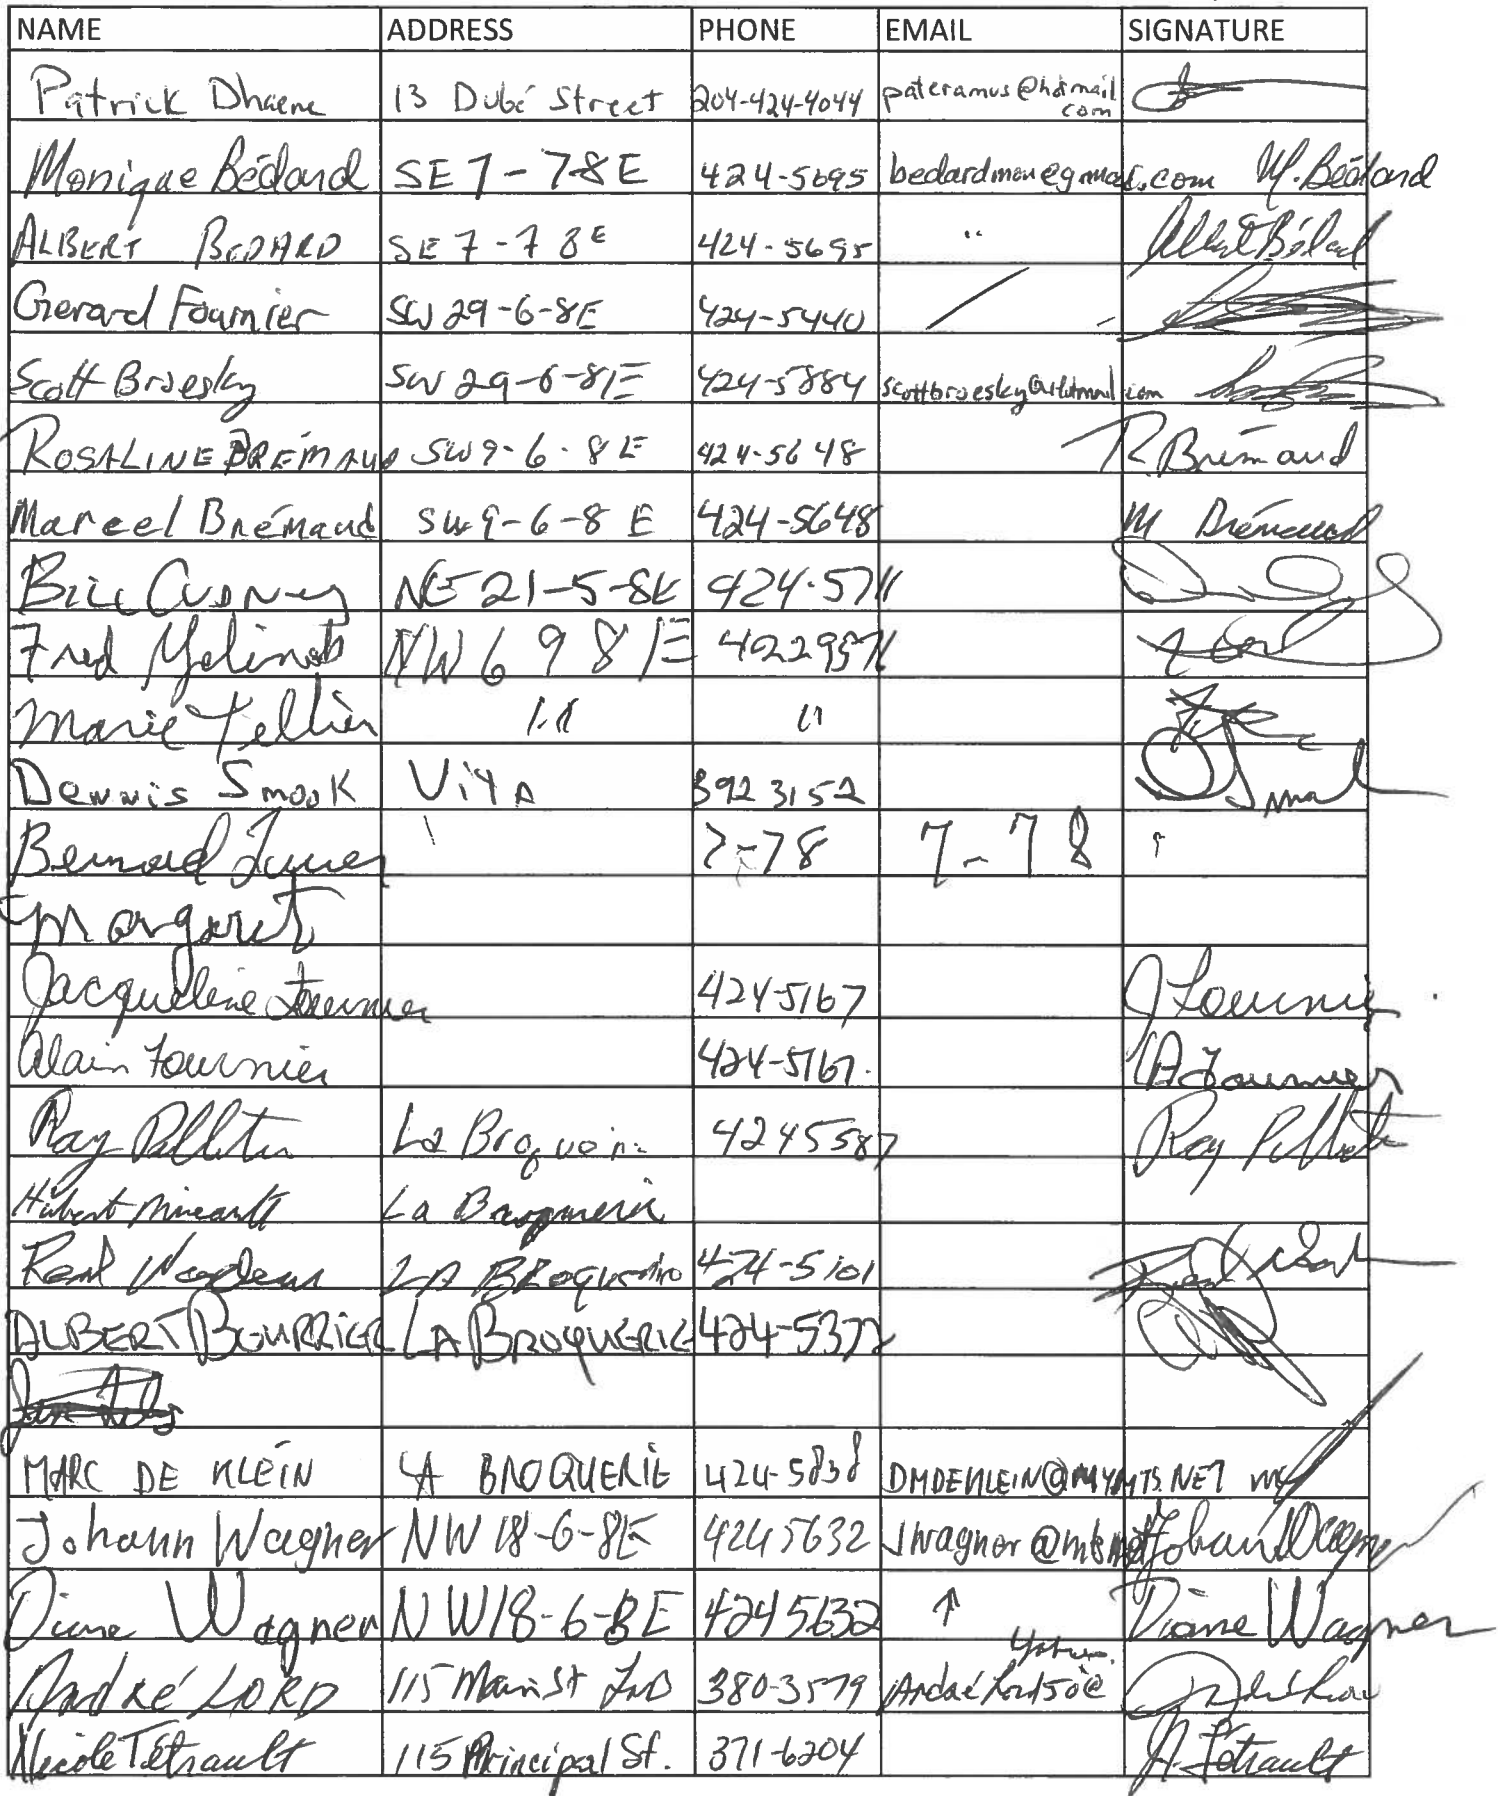 NAME ADDRESS PHONE EMAIL SIGNATURE
Patrick Dhaene 13 Dubé Street 204-424-4044 pateramus@hotmail com
Monique Bédard SE 7-7-8E 424-5695 bedardmon@gmail.com M. Bédard
ALBERT BEDARD SE 7-7 8E 424-5695 " Albert Bédard
Gerard Fournier SW 29-6-8E 424-5440 /
Scott Broesky SW 29-6-8E 424-5884 scottbroesky@hotmail.com
ROSALINE BRÉMAUD SW 9-6-8E 424-5648 R. Brémaud
Marcel Brémaud SW 9-6-8 E 424-5648 M Brémaud
NE 21-5-8E 424-5711
Fred NW 6 9 8 E
Marie Tellier " "
Dennis Smook VitA 392 3152 D Smook
Bernard 7-78 7-78
Margaret
Jacqueline Fournier 424-5167 J Fournier
Alain Fournier 424-5167. A Fournier
Ray Pelletier La Broquerie 424 5587 Ray Pelletier
Hubert Mireault La Broquerie
Real LA BROquerie 424-5101
ALBERT BOURRIER LA BROQUERIE 424-5372
MARC DE KLEIN LA BROQUERIE 424-5838 DMDEKLEIN@MYMTS.NET
Johann Wagner NW 18-6-8E 424 5632 Johann Wagner
Diane Wagner NW 18-6-8E 424 5632 ↑ Diane Wagner
André LORD 115 Main St 380-3579 André Lord
Nicole Tétrault 115 Principal St. 371-6204 N. Tétrault